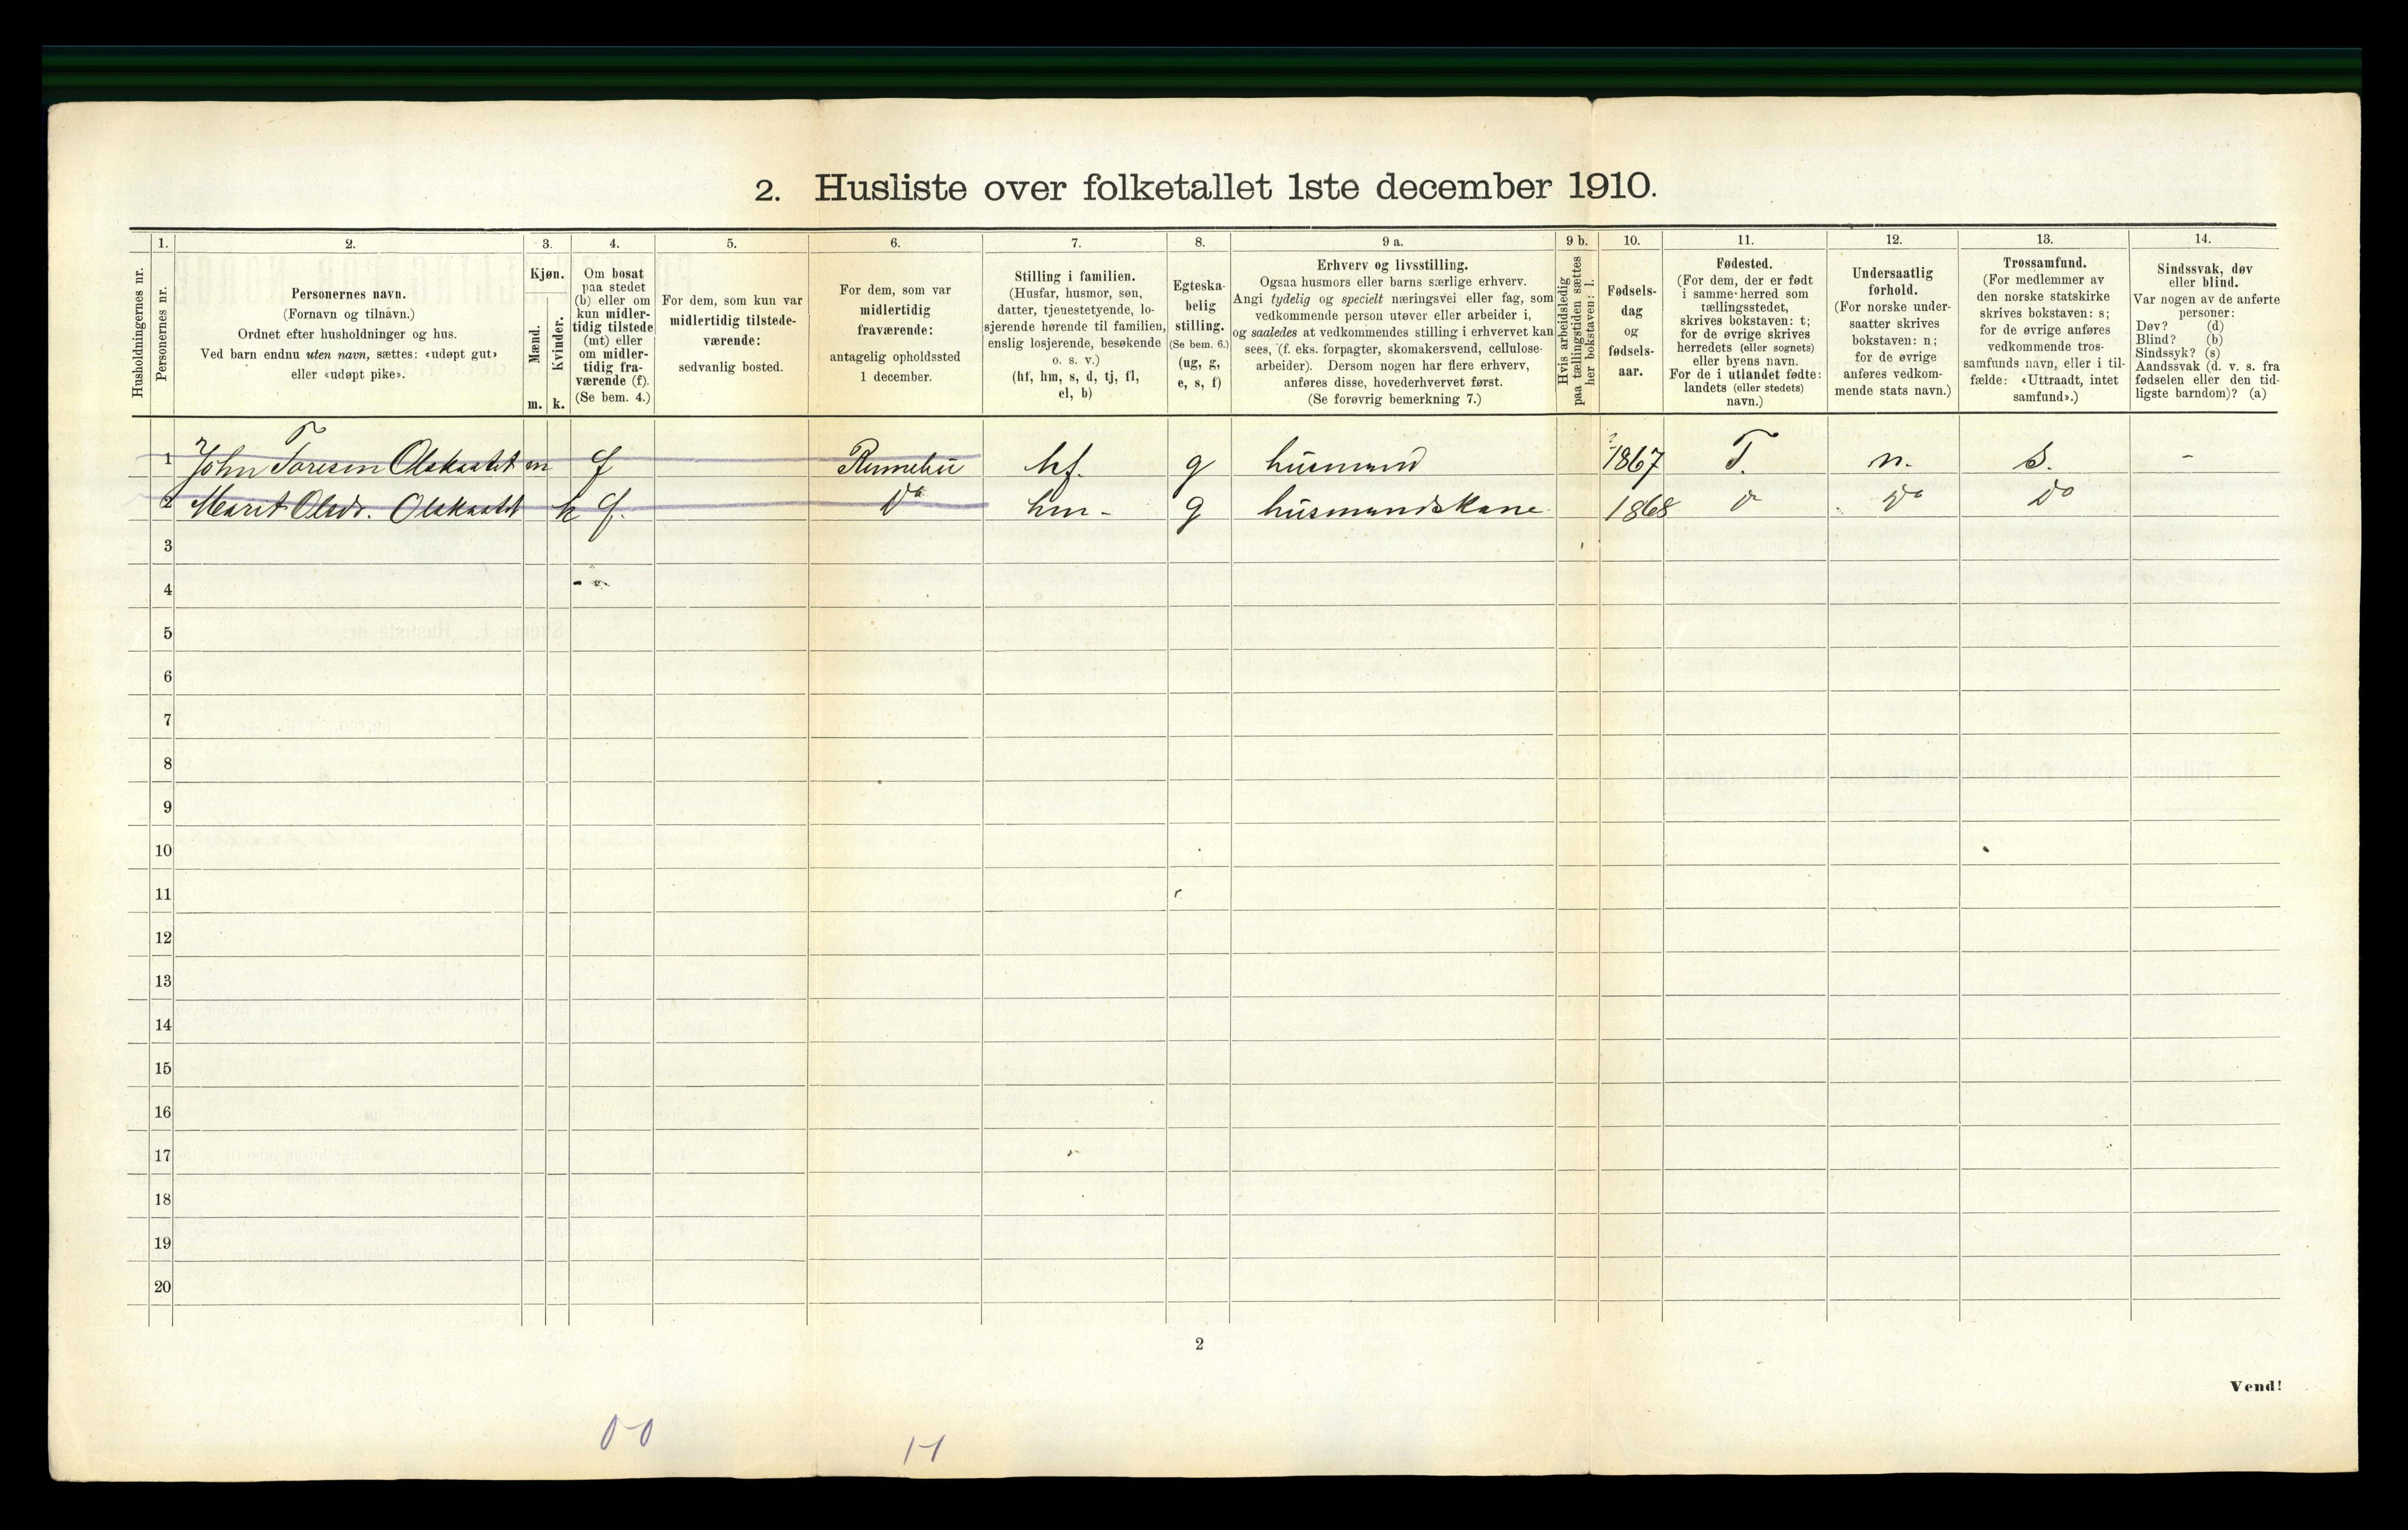 2. Husliste over folketallet 1ste december 1910.
1. 2. 3. 4. 5. 6. 7. 8. 9 a. 9 b. 10. 11. 12. 13. 14.
Husholdningernes nr.
Personernes nr.
Personernes navn.
(Fornavn og tilnavn.)
Ordnet efter husholdninger og hus.
Ved barn endnu uten navn, sættes: «udøpt gut»
eller «udøpt pike».
Kjøn.
Mænd.
Kvinder.
m. k.
Om bosat
paa stedet
(b) eller om
kun midler-
tidig tilstede
(mt) eller
om midler-
tidig fra-
værende (f).
(Se bem. 4.)
For dem, som kun var
midlertidig tilstede-
værende:
sedvanlig bosted.
For dem, som var
midlertidig
fraværende:
antagelig opholdssted
1 december.
Stilling i familien.
(Husfar, husmor, søn,
datter, tjenestetyende, lo-
sjerende hørende til familien,
enslig losjerende, besøkende
o. s. v.)
(hf, hm, s, d, tj, fl,
el, b)
Egteska-
belig
stilling.
(Se bem. 6.)
(ug, g,
e, s, f)
Erhverv og livsstilling.
Ogsaa husmors eller barns særlige erhverv.
Angi tydelig og specielt næringsvei eller fag, som
vedkommende person utøver eller arbeider i,
og saaledes at vedkommendes stilling i erhvervet kan
sees, (f. eks. forpagter, skomakersvend, cellulose-
arbeider). Dersom nogen har flere erhverv,
anføres disse, hovederhvervet først.
(Se forøvrig bemerkning 7.)
Hvis arbeidsledig
paa tællingstiden sættes
her bokstaven: l.
Fødsels-
dag
og
fødsels-
aar.
Fødested.
(For dem, der er født
i samme herred som
tællingsstedet,
skrives bokstaven: t;
for de øvrige skrives
herredets (eller sognets)
eller byens navn.
For de i utlandet fødte:
landets (eller stedets)
navn.)
Undersaatlig
forhold.
(For norske under-
saatter skrives
bokstaven: n;
for de øvrige
anføres vedkom-
mende stats navn.)
Trossamfund.
(For medlemmer av
den norske statskirke
skrives bokstaven: s;
for de øvrige anføres
vedkommende tros-
samfunds navn, eller i til-
fælde: «Uttraadt, intet
samfund».)
Sindssvak, døv
eller blind.
Var nogen av de anførte
personer:
Døv? (d)
Blind? (b)
Sindssyk? (s)
Aandssvak (d. v. s. fra
fødselen eller den tid-
ligste barndom)? (a)
1 John Toresen m f hf. g husmand 1867 T. n. s. -
2 Marit Olsdr. k f. Do hm - g husmandskone 1868 Do Do
3
4
5
6
7
8
9
10
11
12
13
14
15
16
17
18
19
20
2
Vend!
0-0
1-1